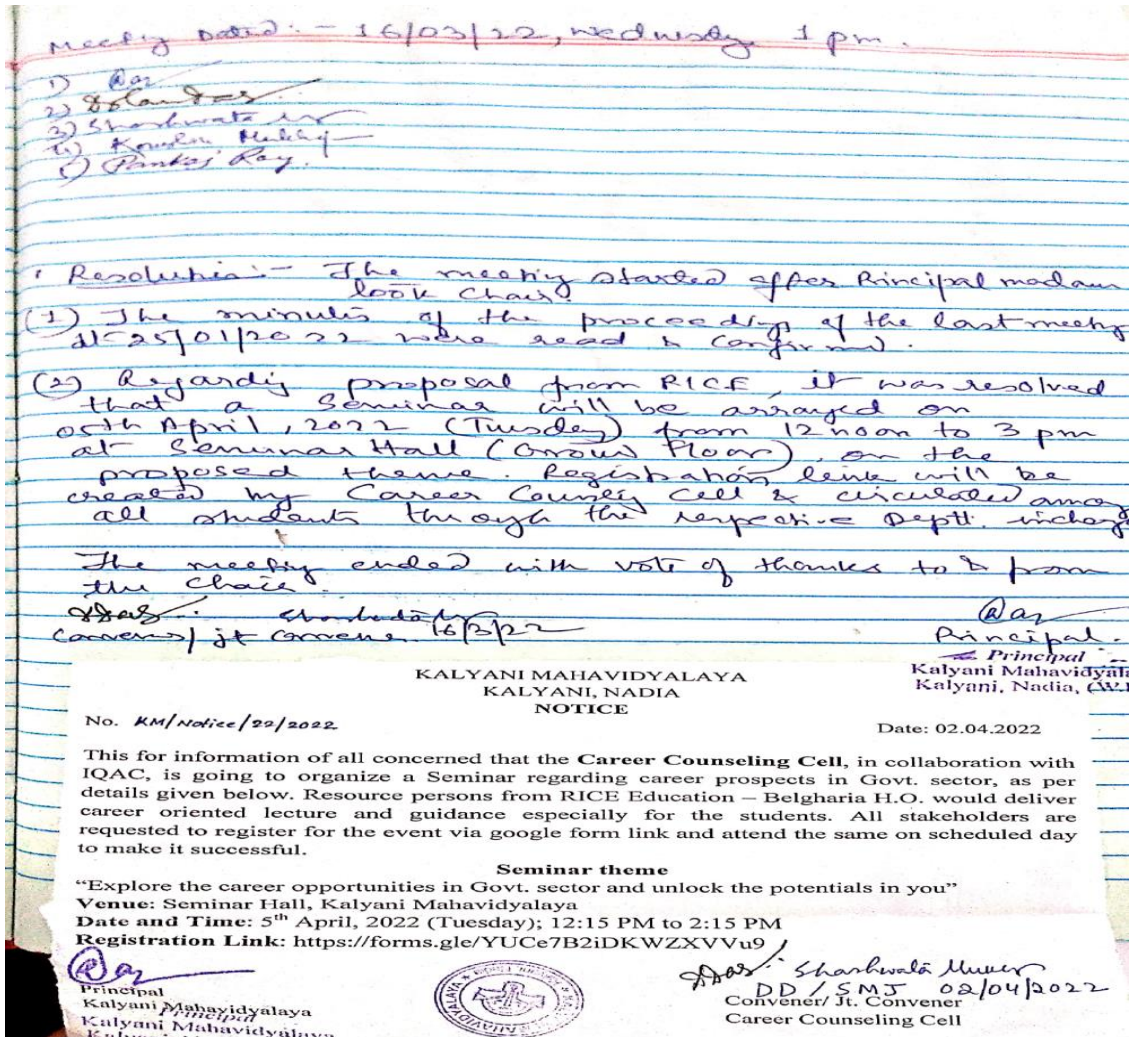 Meeting Dated:- 16/03/22, Wednesday 1 pm.
1)
2)
3) Shashwata
4)
5) Pankaj Ray.
Resolution:- The meeting started after Principal madam
took chair.
(1) The minutes of the proceedings of the last meeting
dt-25/01/2022 were read & confirmed.
(2) Regarding proposal from RICE, it was resolved
that a Seminar will be arranged on
05th April, 2022 (Tuesday) from 12 noon to 3 pm
at Seminar Hall ( Floor), on the
proposed theme. Registration link will be
created by Career Cell & circulated among
all students through the respective Deptt. incharge
The meeting ended with vote of thanks to & from
the chair.
DDas 16/3/22
Convener/ jt convener
Principal.
Principal
Kalyani Mahavidyala
Kalyani, Nadia, (W.B
KALYANI MAHAVIDYALAYA
KALYANI, NADIA
NOTICE
No. KM/Notice/22/2022 Date: 02.04.2022
This for information of all concerned that the Career Counseling Cell, in collaboration with
IQAC, is going to organize a Seminar regarding career prospects in Govt. sector, as per
details given below. Resource persons from RICE Education – Belgharia H.O. would deliver
career oriented lecture and guidance especially for the students. All stakeholders are
requested to register for the event via google form link and attend the same on scheduled day
to make it successful.
Seminar theme
“Explore the career opportunities in Govt. sector and unlock the potentials in you”
Venue: Seminar Hall, Kalyani Mahavidyalaya
Date and Time: 5th April, 2022 (Tuesday); 12:15 PM to 2:15 PM
Registration Link: https://forms.gle/YUCe7B2iDKWZXVVu9
Principal
Kalyani Mahavidyalaya
Principal
Kalyani Mahavidyalaya
DDas Shashwata
DD / SMJ 02/04/2022
Convener/ Jt. Convener
Career Counseling Cell